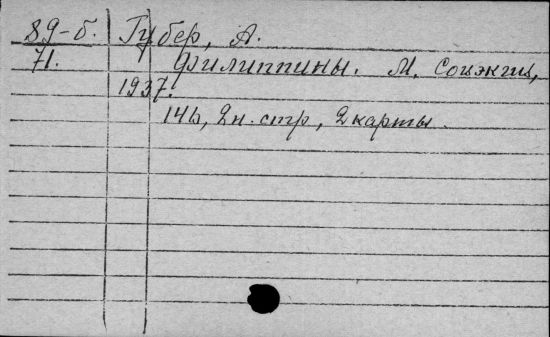 89-б. Губер, А.
71. Филиппины. М. Соцэкгиз,
1937.
146, 2 н. стр, 2 карты.